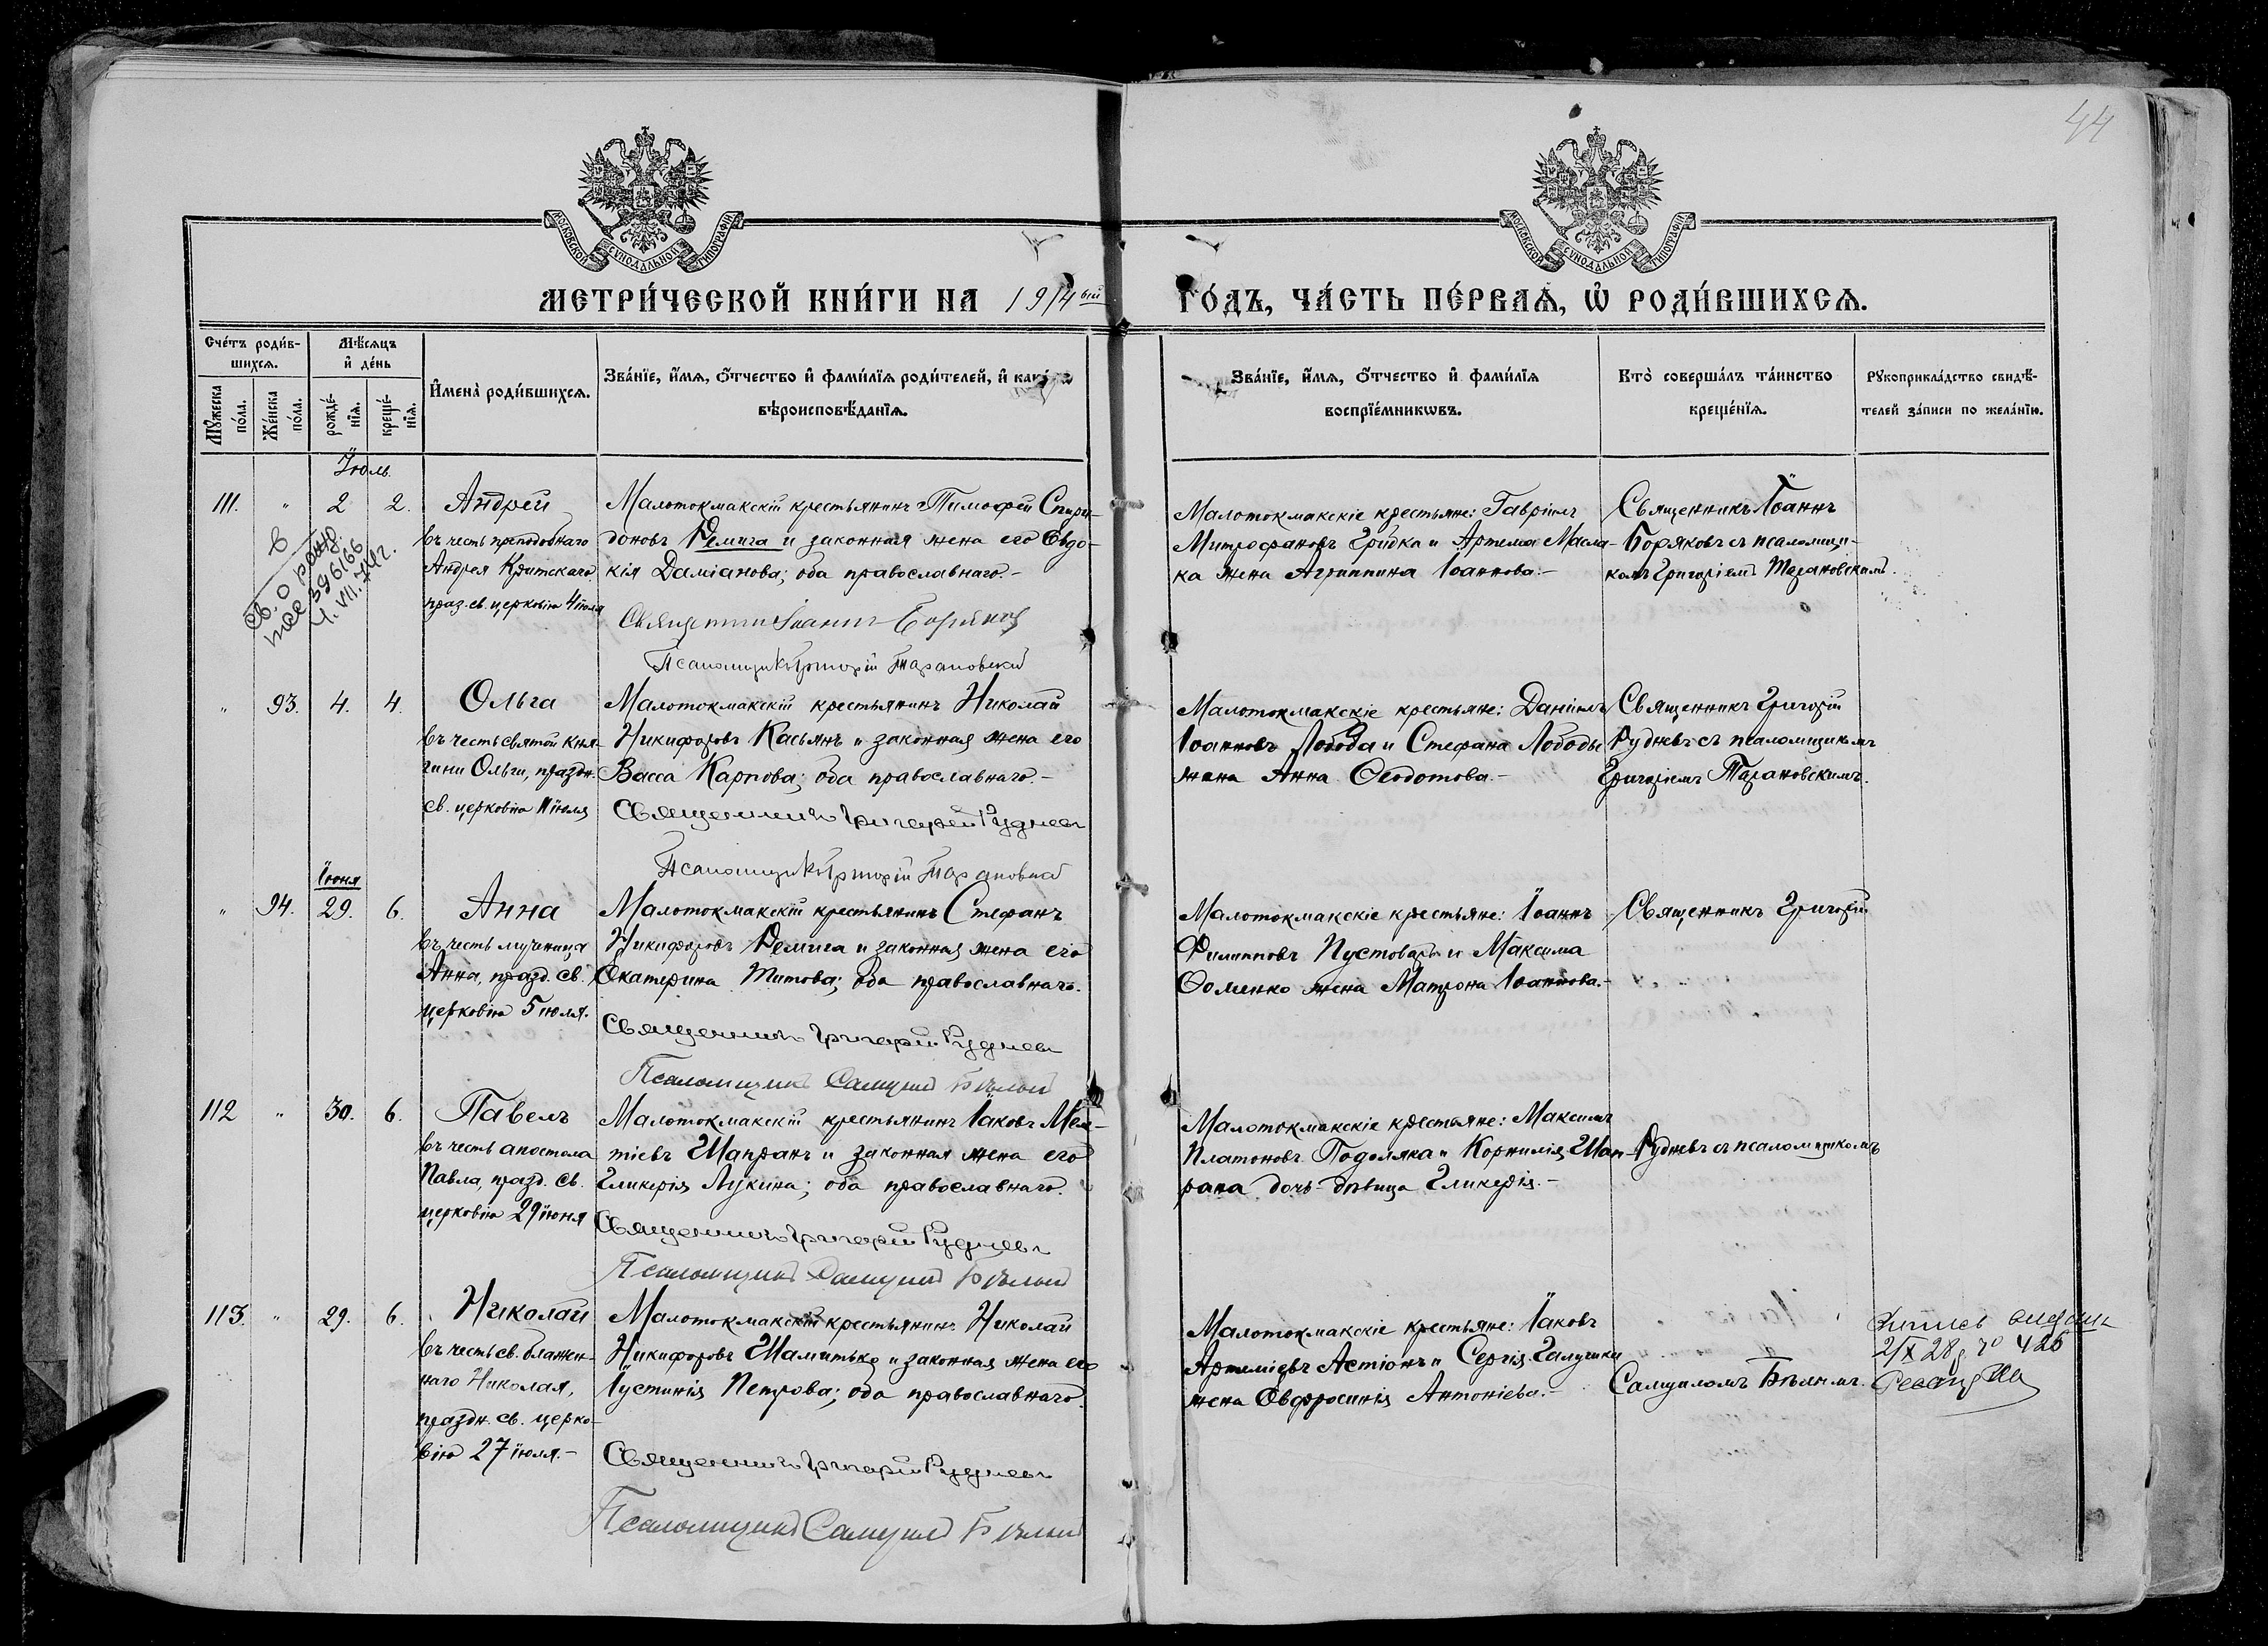 44
МОСКОВСКОЙ СѴНОДАЛЬНОЙ ТИПОГРАФІИ
МОСКОВСКОЙ СѴНОДАЛЬНОЙ ТИПОГРАФІИ
МЕТРИ́ЧЕСКОЙ КНИ́ГИ НА 1914ый ГО́ДЪ, ЧА́СТЬ ПЕ́РВАѦ, Ѡ҆ РОДИ́ВШИХСѦ.
Сче́тъ роди́в-
шихсѧ.
Мꙋ́жеска по́ла.
Же́нска по́ла.
Мѣ́сѧцъ
и҆ де́нь
рожде́-
нїѧ.
креще́-
нїѧ.
И҆мена̀ роди́вшихсѧ.
Зва́нїе, и҆́мѧ, ѻ҆́тчество и҆ фами́лїѧ роди́телей, и҆ како́гѡ
вѣроисповѣ́данїѧ.
Зва́нїе, и҆́мѧ, ѻ҆́тчество и҆ фами́лїѧ
воспрїе́мникѡвъ.
Кто̀ соверша́лъ та́инство
креще́нїѧ.
Рꙋкоприкла́дство свидѣ́-
телей за́писи по жела́нїю.
Іюль.
111. " 2 2. Андрей
въ честь преподобнаго
Андрея Критскаго
праз. св. церковію 4 іюля
Малотокмакскій крестьянинъ Тимофей Спири-
доновъ Ремига и законная жена его Евдо-
кія Даміанова; оба православнаго.-
Священникъ Іоаннъ Боряковъ
Псаломщикъ Григорій Тарановскій
Малотокмакскіе крестьяне: Гавріилъ
Митрофановъ Гридка и Артемія Масла-
ка жена Агриппина Іоаннова.-
Священникъ Іоаннъ
Боряковъ съ псаломщи-
комъ Григоріемъ Тарановскимъ.
св. о рожд.
4. VII.
" 93. 4. 4. Ольга
въ честь святой кня-
гини Ольги, праздн.
св. церковію 11 іюля
Малотокмакскій крестьянинъ Николай
Никифоровъ Касьянъ и законная жена его
Васса Карпова; оба православнаго.-
Священникъ Григорій Рудневъ
Псаломщикъ Григорій Тарановскій
Малотокмакскіе крестьяне: Даніилъ
Іоанновъ Лобода и Стефана Лободы
жена Анна Ѳеодотова.-
Священникъ Григорій
Рудневъ съ псаломщикомъ
Григоріемъ Тарановскимъ.
Іюня
" 94. 29. 6. Анна
въ честь мученица
Анна, празд. св.
церковію 5 іюля.
Малотокмакскій крестьянинъ Стефанъ
Никифоровъ Ремига и законная жена его
Екатерина Титова; оба православнаго.
Священникъ Григорій Рудневъ
Псаломщикъ Самуилъ Бѣлый
Малотокмакскіе крестьяне: Іоаннъ
Филипповъ Пустоваръ и Максима
Ѳоменко жена Матрона Іоаннова.-
Священникъ Григорій
112 " 30. 6. Павелъ
въ честь апостола
Павла, празд. св.
церковію 29 іюня
Малотокмакскій крестьянинъ Іаковъ Меле-
тіевъ Шапранъ и законная жена его
Гликерія Лукина; оба православнаго.
Священникъ Григорій Рудневъ
Псаломщикъ Самуилъ Бѣлый
Малотокмакскіе крестьяне: Максимъ
Платоновъ Подоляка и Корнилія Шап-
рана дочь-дѣвица Гликерія.-
Рудневъ съ псаломщикомъ
113. " 29. 6. Николай
въ честь св. блажен-
наго Николая,
праздн. св. церко-
вію 27 іюля.-
Малотокмакскій крестьянинъ Николай
Никифоровъ Шамитько и законная жена его
Іустинія Петрова; оба православнаго.
Священникъ Григорій Рудневъ
Псаломщикъ Самуилъ Бѣлый
Малотокмакскіе крестьяне: Іаковъ
Артеміевъ Астіонъ и Сергія Галушки
жена Евфросинія Антоніева.-
Самуиломъ Бѣлымъ.
2/X 28